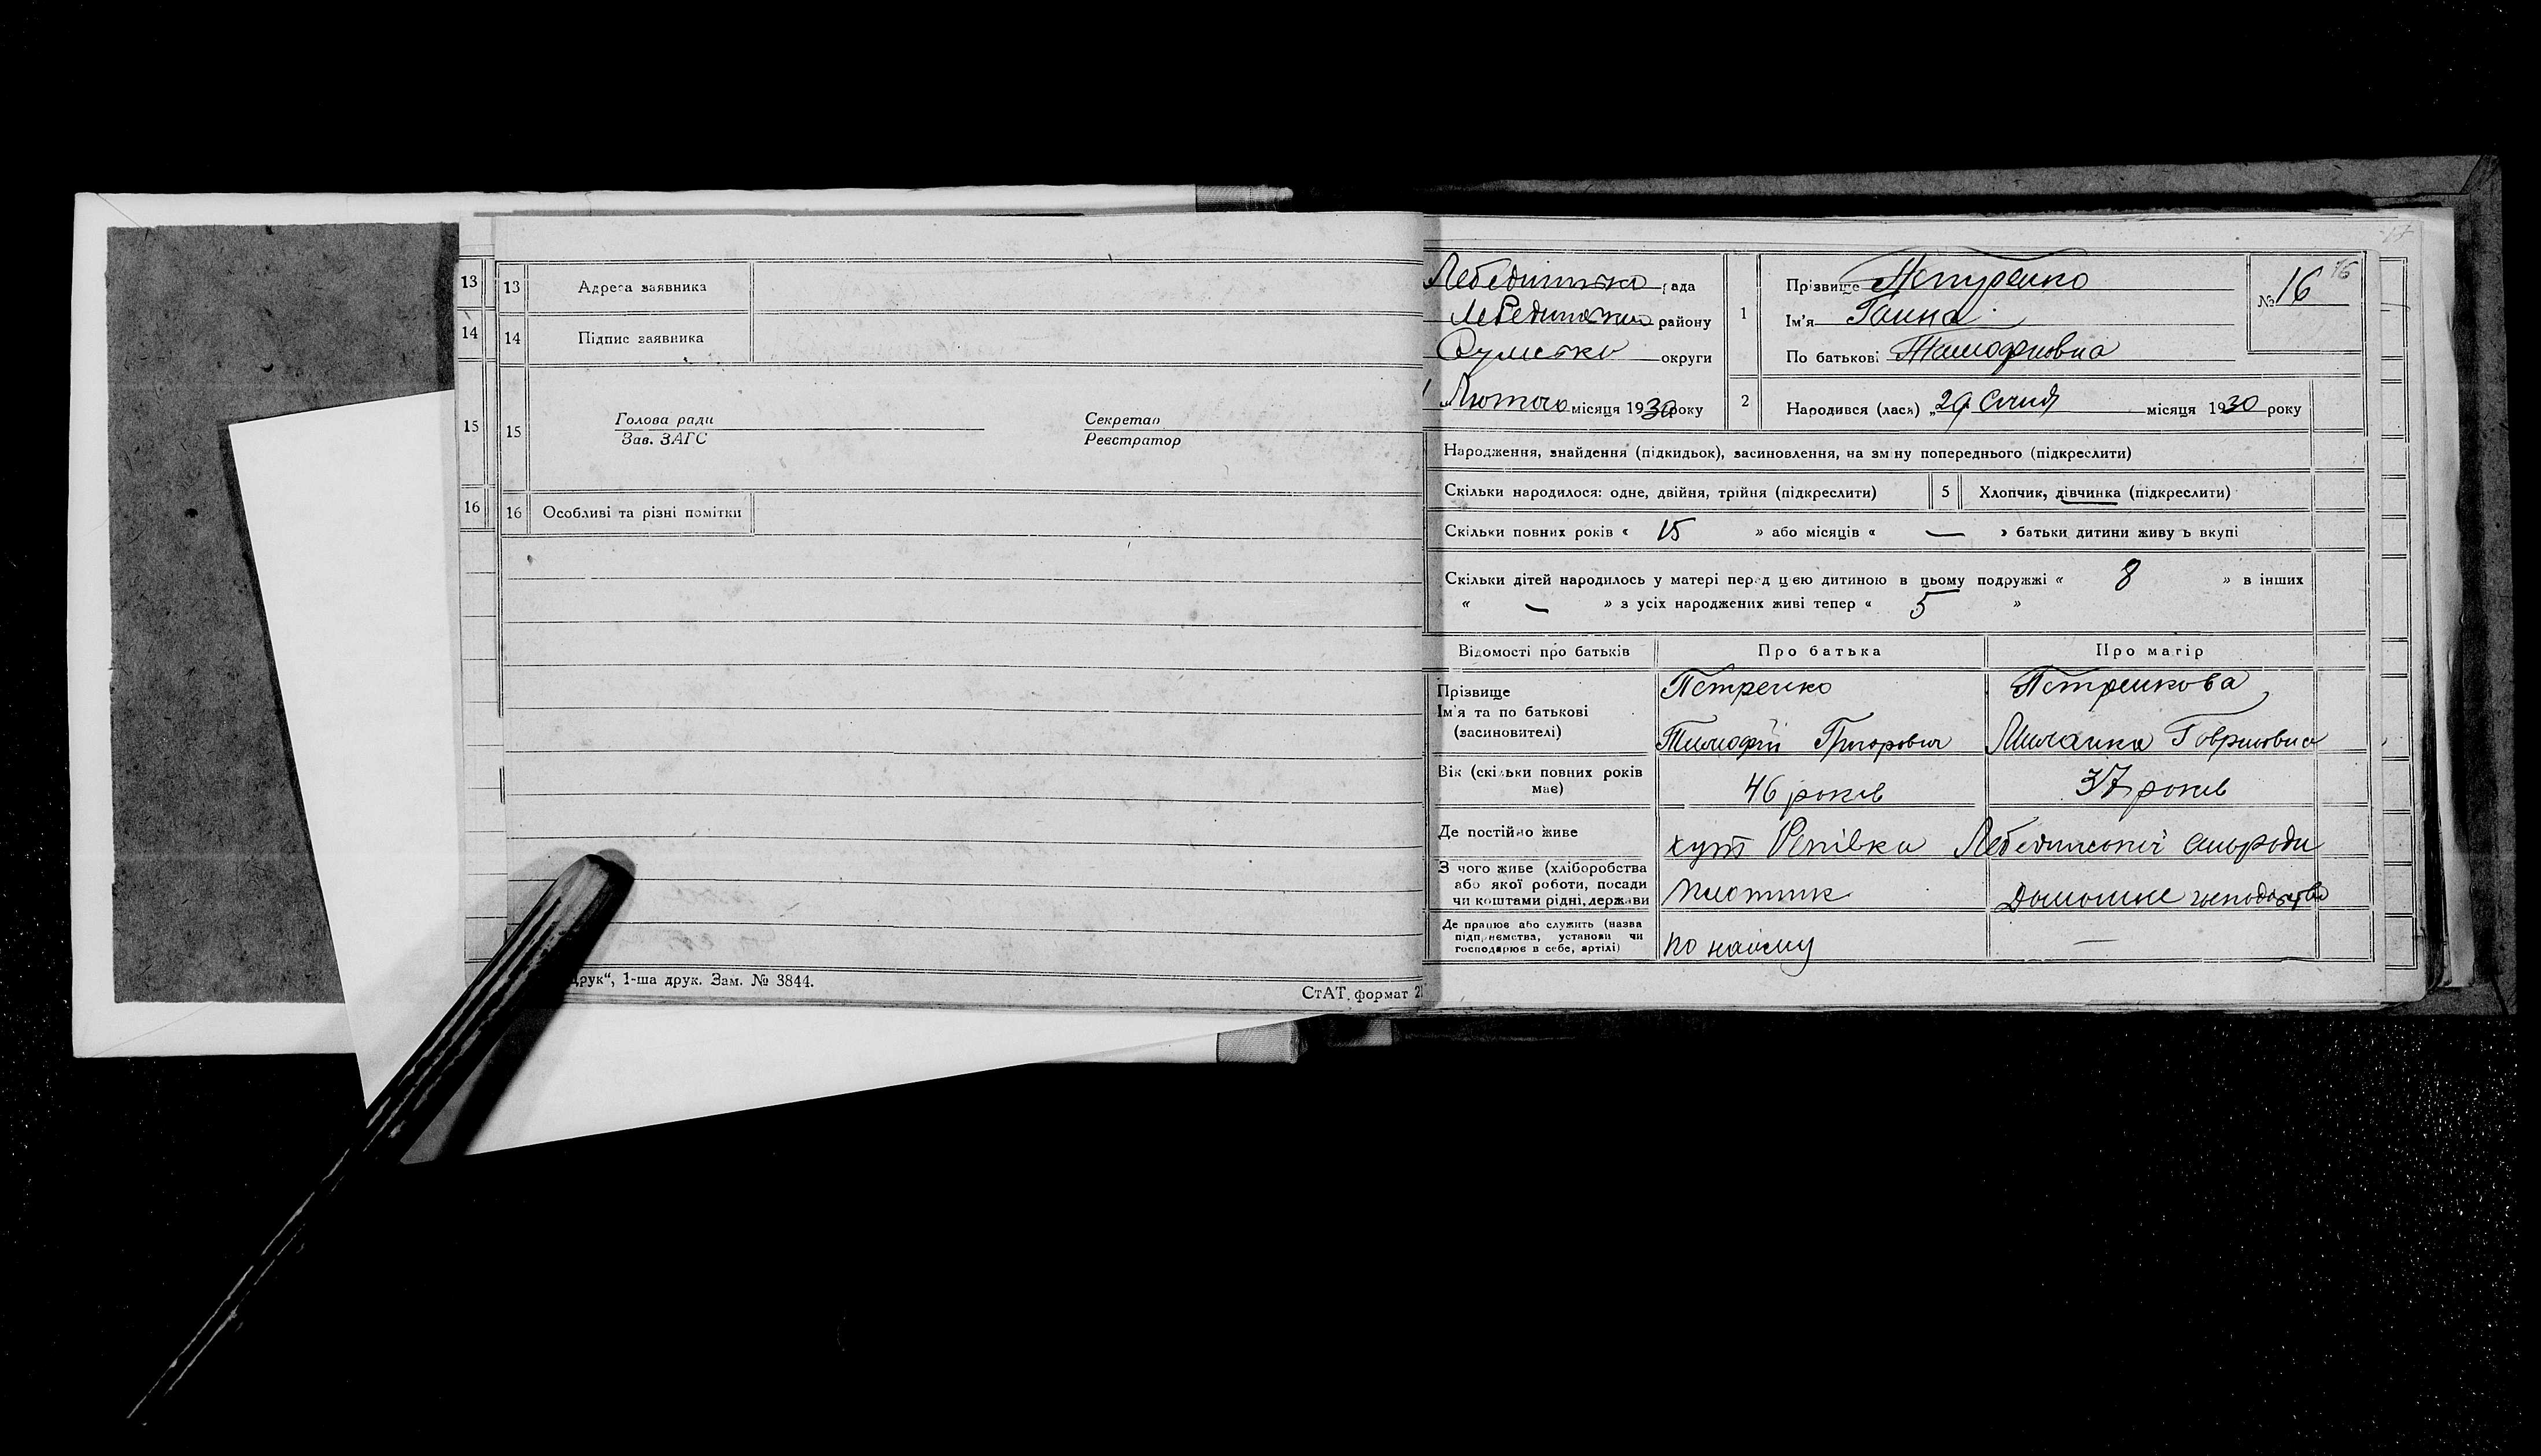 13
14
15
16
13 Адреса заявника
14 Підпис заявника
15 Голова ради
Зав. ЗАГС
Секретар
Реєстратор
16 Особливі та різні помітки
друк“, 1-ша друк. Зам. № 3844.
СтАТ. формат 21
рада
району
округи
Лютого місяця 1930 року
1
Прізвище
Ім'я Ганна
По батькові
№ 16
16
2 Народився (лася) „29 Січня місяця 1930 року
Народження, знайдення (підкидьок), засиновлення, на зміну попереднього (підкреслити)
Скільки народилося: одне, двійня, трійня (підкреслити)
5 Хлопчик, дівчинка (підкреслити)
Скільки повних років « 15 » або місяців « — » батьки дитини живуть вкупі
Скільки дітей народилось у матері перед цією дитиною в цьому подружжі « 8 » в інших
« — » з усіх народжених живі тепер « 5 »
Відомості про батьків Про батька Про матір
Прізвище Петренко Петренкова
Ім'я та по батькові
(засиновителі) Тимофій Григорович
Вік (скільки повних років
має) 46 років 37 років
Де постійно живе хут Репівка
З чого живе (хліборобства
або якої роботи, посади
чи коштами рідні, держави
плотник Домашнє господарство
Де працює або служить (назва
підприємства, установи чи
господарює в себе, артілі)
по найму —